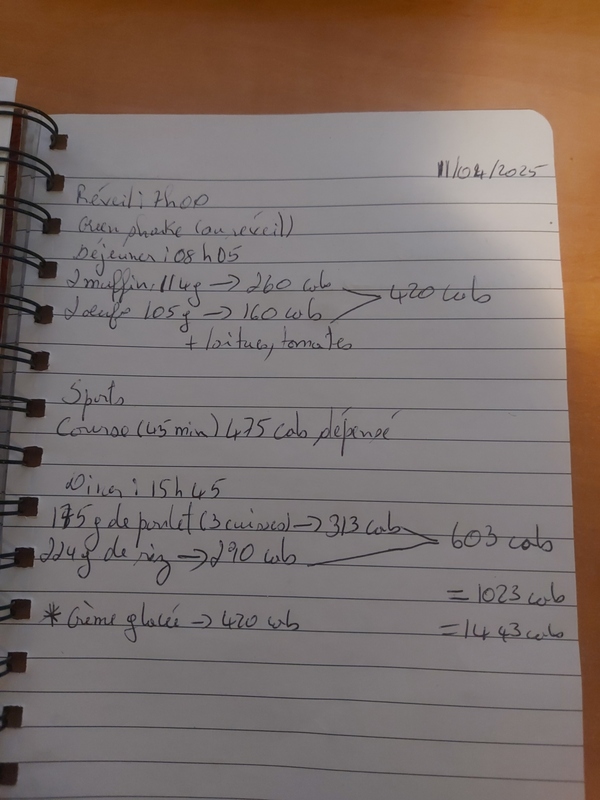 11/04/2025
Réveil : 7h00
Green shake (au réveil)
Déjeuner : 08h05
2 muffin 114g → 260 cab
2 œufs 105g → 160 cab
420 cab
+ laitues, tomates
Sports
Course (45 min) 475 cab dépensé
Diner : 15h45
175g de poulet (3 cuisses) → 313 cab
224g de riz → 290 cab
603 cab
= 1023 cab
* Crème glacée → 420 cab
= 1443 cab